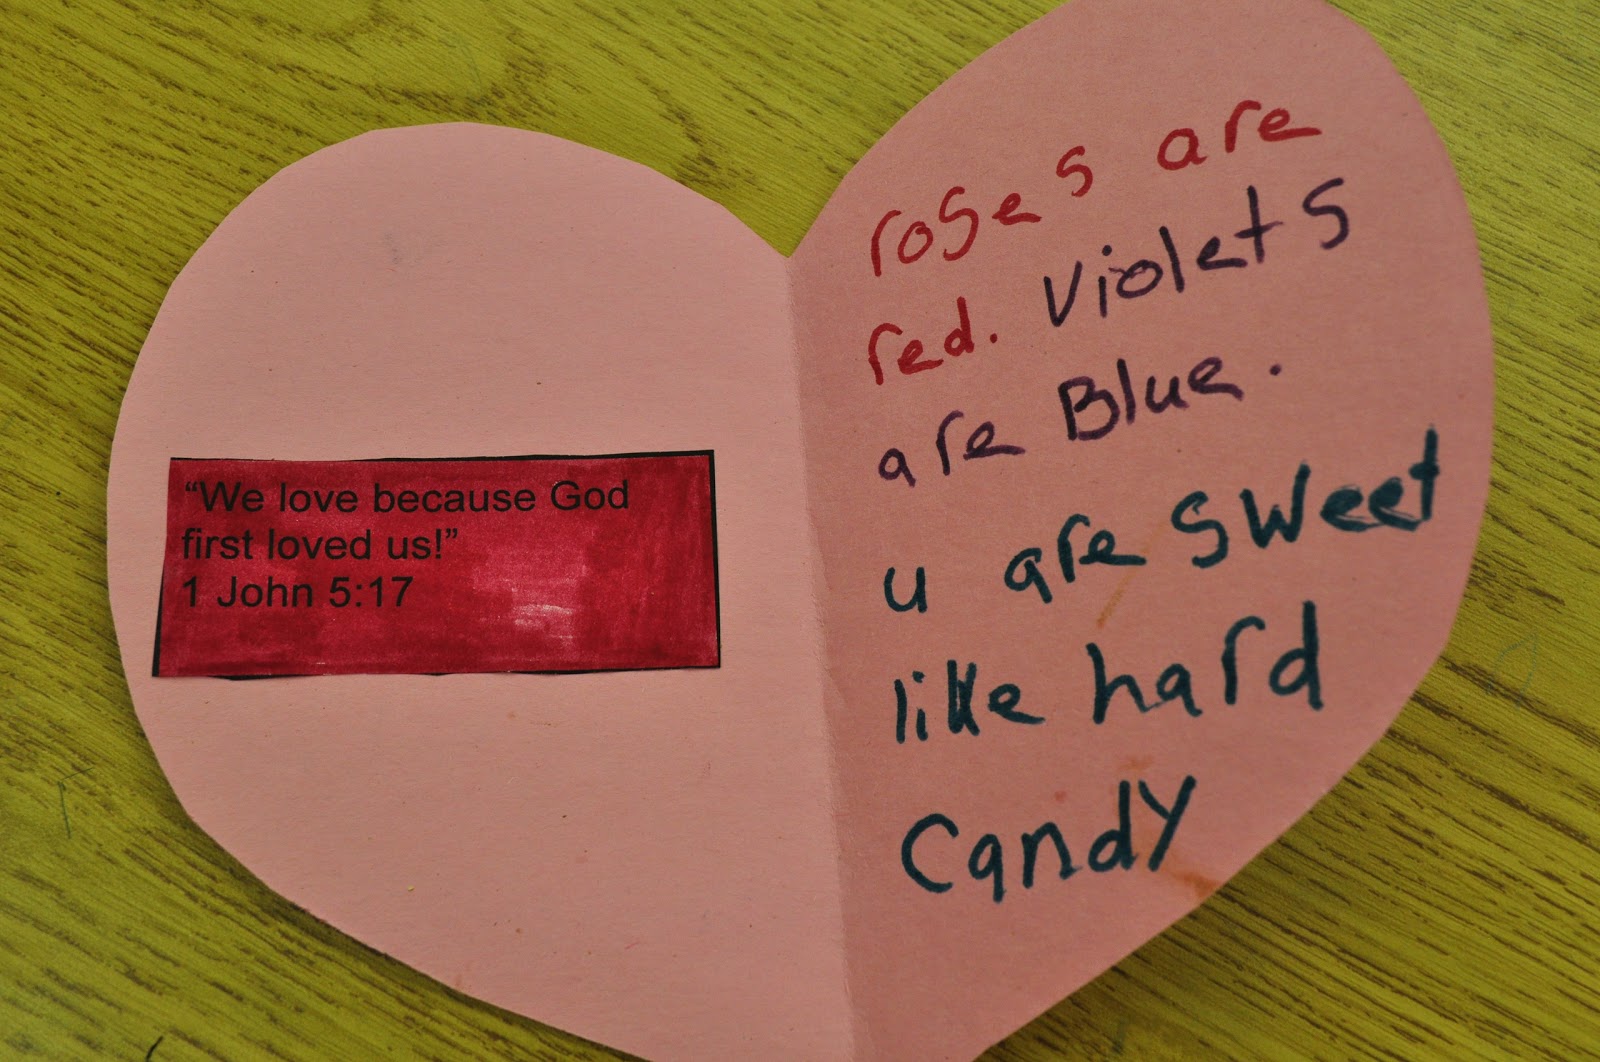 “We love because God
first loved us!”
1 John 5:17
roses are
red. Violets
are Blue.
u are sweet
like hard
Candy